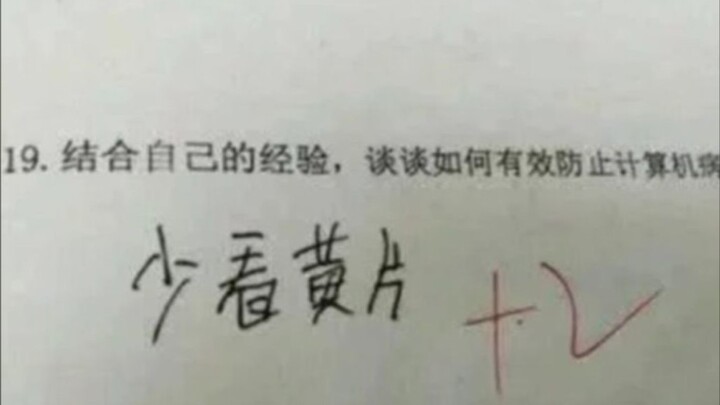 19. 结合自己的经验，谈谈如何有效防止计算机病
少看黄片
+2